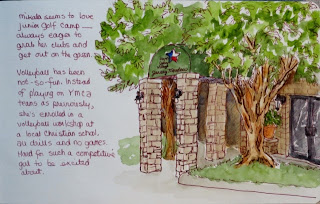 Mikala seems to love
Junior Golf Camp __
always eager to
grab her clubs and
get out on the green.
Volleyball has been
not-so-fun. Instead
of playing on YMCA
teams as previously,
she's enrolled in a
volleyball workshop at
a local Christian school.
All drills and no games.
Hard for such a competitive
gal to be excited
about.